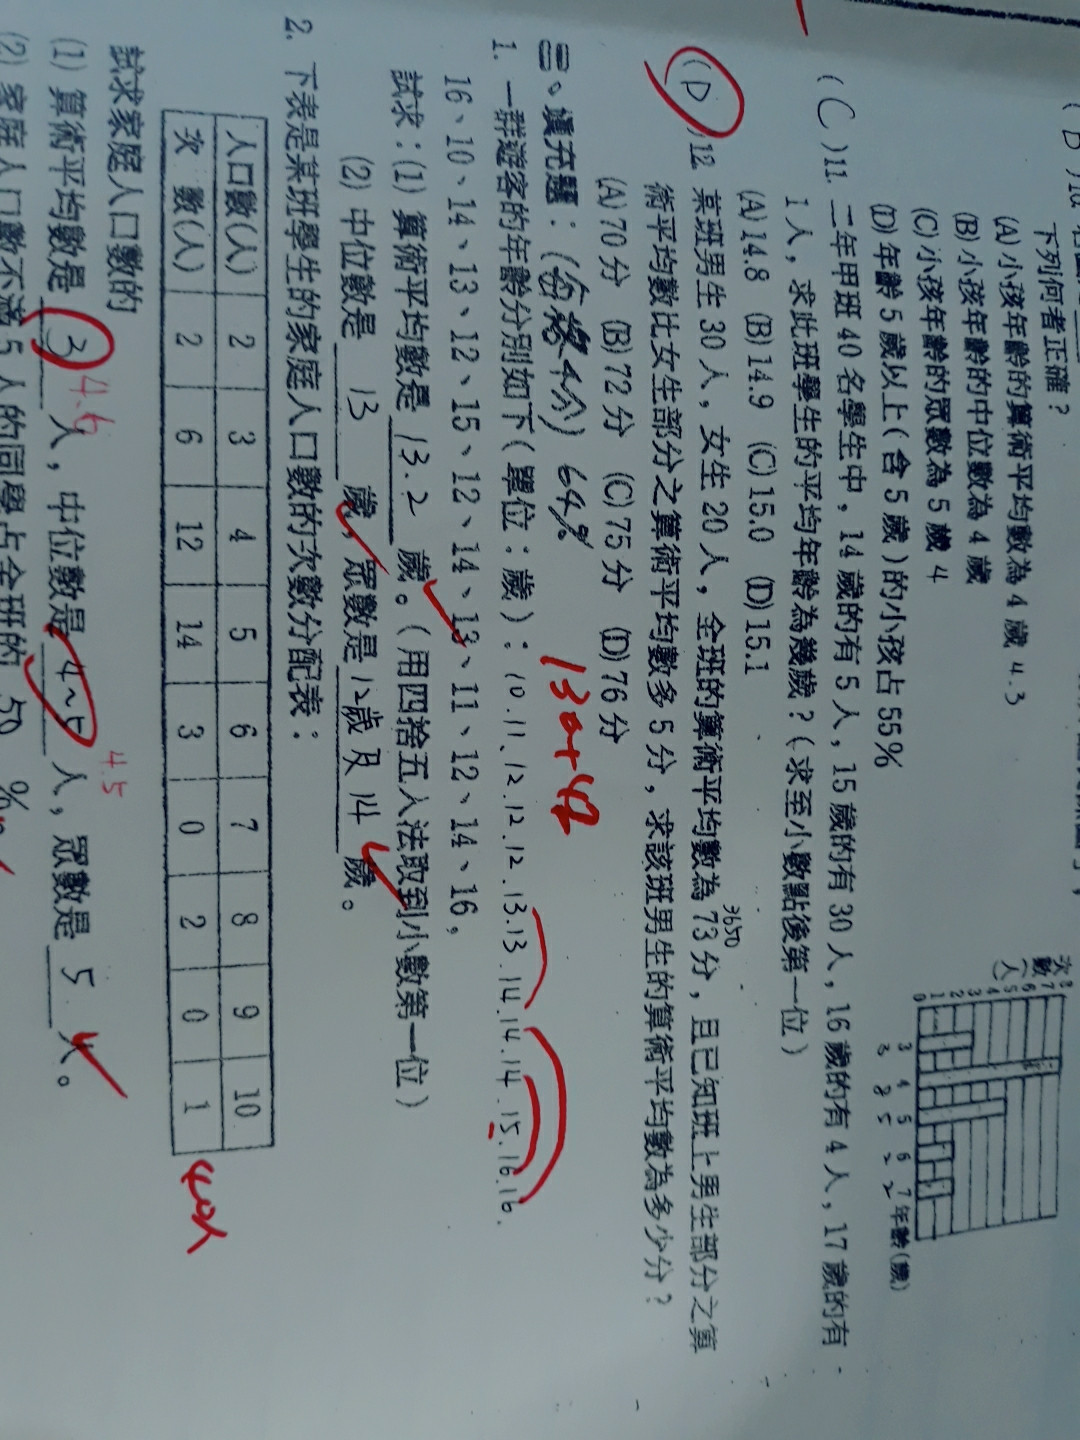 下列何者正確？
(A) 小孩年齡的算術平均數為 4 歲 4.3
(B) 小孩年齡的中位數為 4 歲
(C) 小孩年齡的眾數為 5 歲 4
(D) 年齡 5 歲以上(含 5 歲)的小孩占 55%
次數(人)
8
7
6
5
4
3
2
1
0
3 4 5 6 7 年齡(歲)
3 8 5 2 2
(C)11. 二年甲班 40 名學生中，14 歲的有 5 人，15 歲的有 30 人，16 歲的有 4 人，17 歲的有
1 人，求此班學生的平均年齡為幾歲？(求至小數點後第一位)
(A)14.8 (B)14.9 (C)15.0 (D)15.1
3650
(D)12. 某班男生 30 人，女生 20 人，全班的算術平均數為 73 分，且已知班上男生部分之算
術平均數比女生部分之算術平均數多 5 分，求該班男生的算術平均數為多少分？
(A)70 分 (B)72 分 (C)75 分 (D)76 分
二、填充題：(每格4分) 64%
130+42
1. 一群遊客的年齡分別如下(單位：歲)：10.11.12.12.12.13.13.14.14.14.15.16.16.
16、10、14、13、12、15、12、14、13、11、12、14、16，
試求：(1) 算術平均數是 13.2 歲。(用四捨五入法取到小數第一位)
(2) 中位數是 13 歲，眾數是 12歲及14 歲。
2. 下表是某班學生的家庭人口數的次數分配表：
人口數(人) 2 3 4 5 6 7 8 9 10
次 數(人) 2 6 12 14 3 0 2 0 1
40人
試求家庭人口數的
(1) 算術平均數是 3 人，中位數是 4~5 人，眾數是 5 人。
4.6
4.5
(2) 家庭人口數不滿 5 人的同學占全班的 50 %